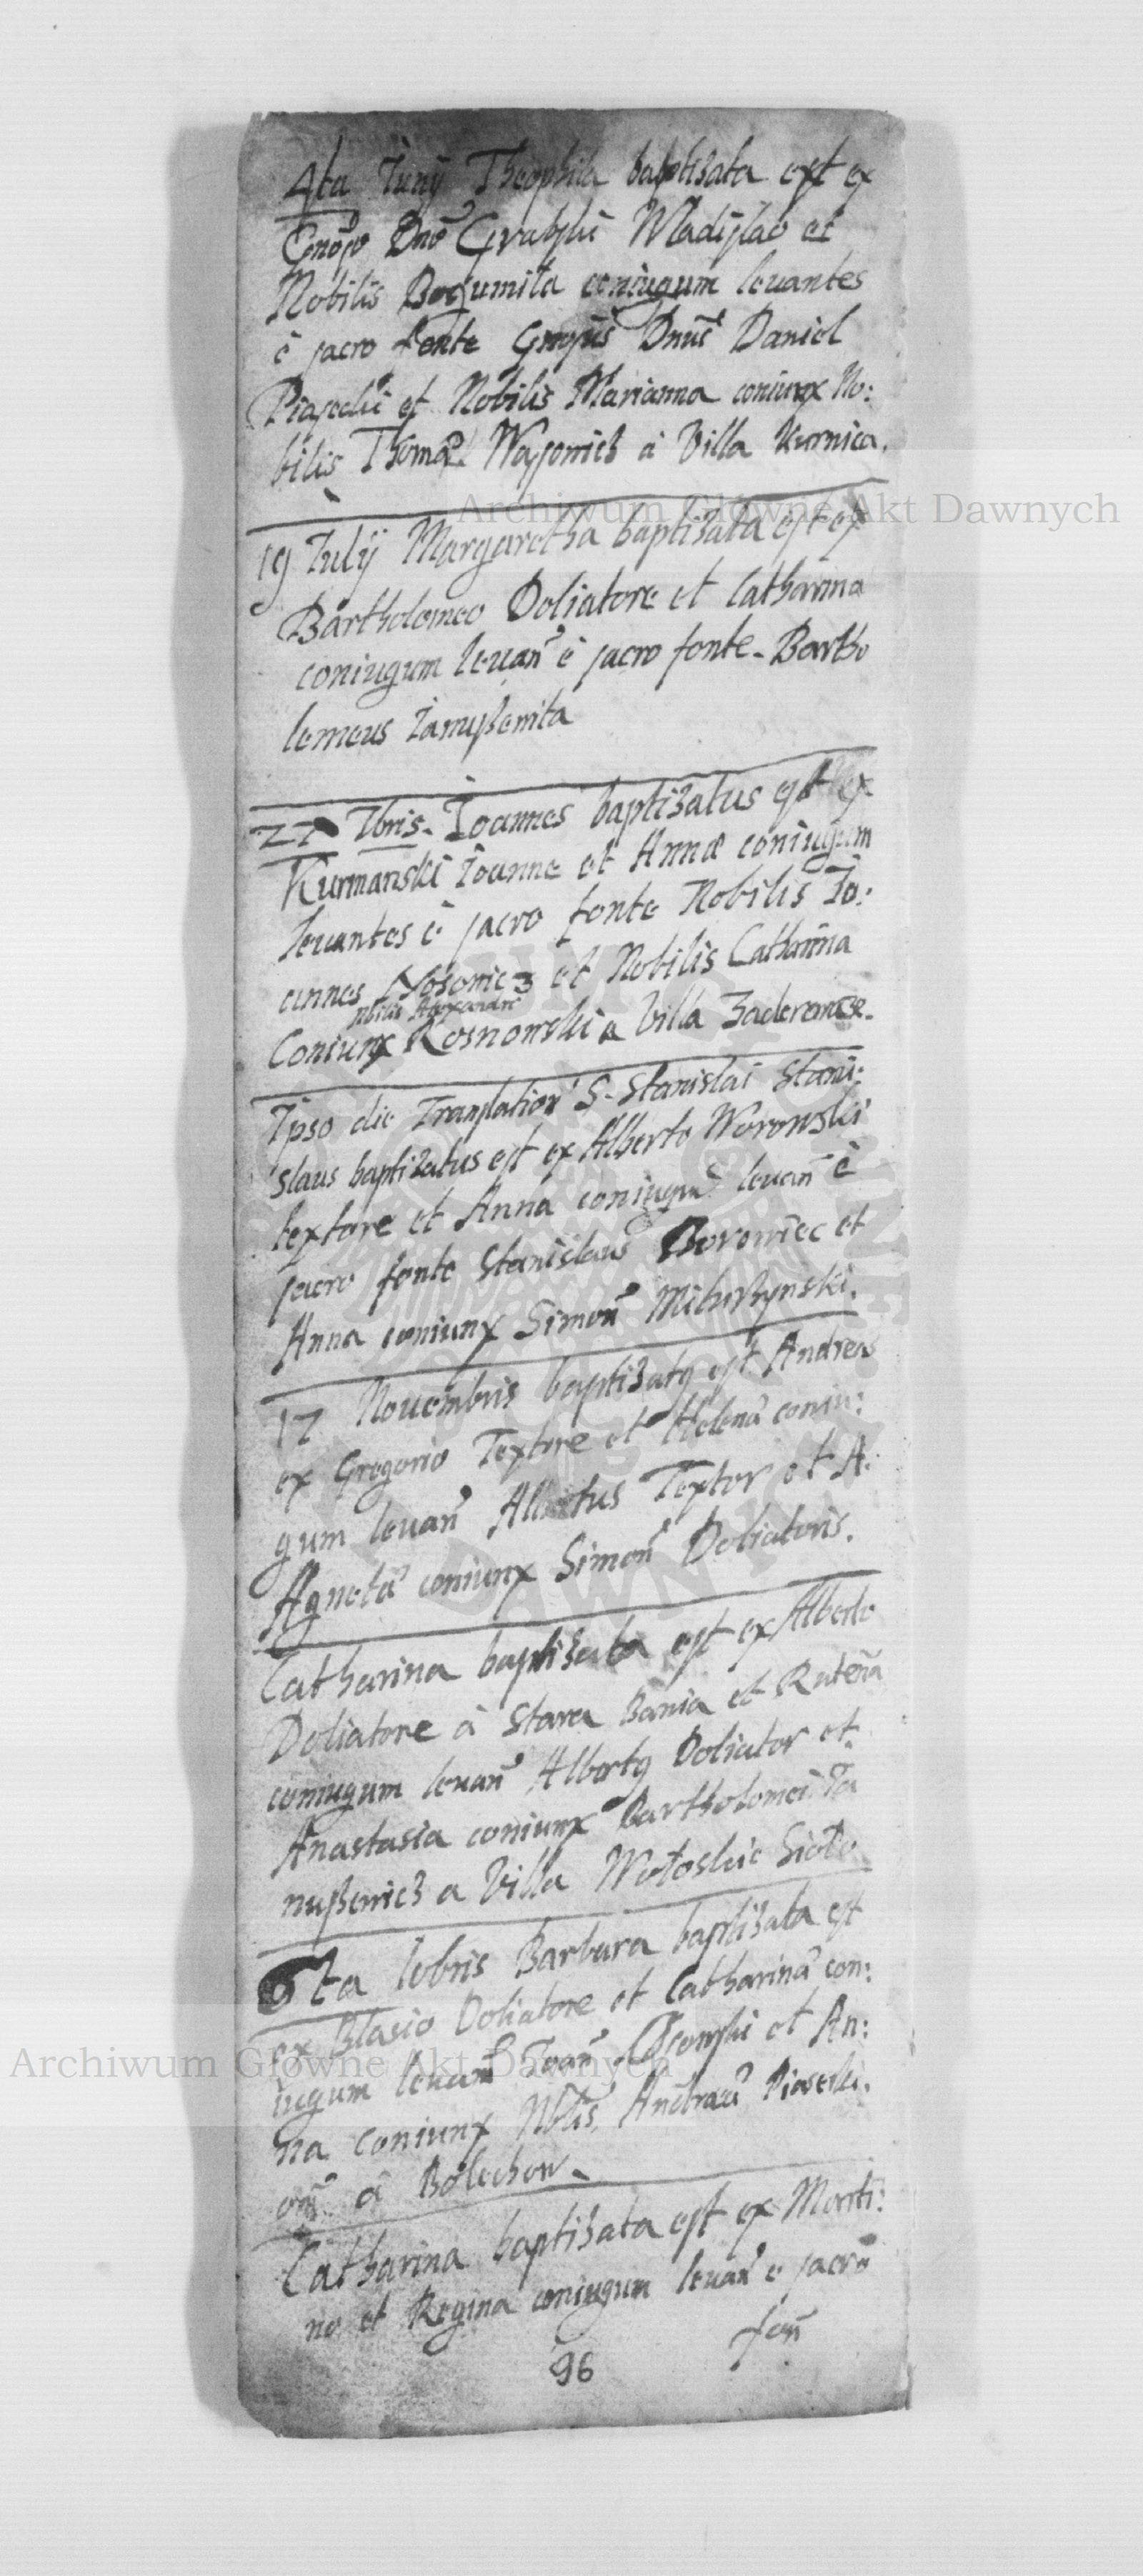 4ta Iunij Theophila baptisata est ex
Gnoso Dno Grabski Wladislao et
Nobilis Bogumila coniugum leuantes
è sacro fonte Gnosus Dnus Daniel
Piasecki et Nobilis Marianna coniunx No:
bilis Thomae Wasowicz à Villa Kurnica.
Archiwum Główne Akt Dawnych
19 Iulij Margaretha baptizata est ex
Bartholomeo Doliatore et Catharina
coniugum leuan è sacro fonte Bartho
lomeus Ianuszewita
27 7bris Ioannes baptizatus est ex
Kurmanski Ioanne et Annae coniugum
leuantes è sacro fonte Nobilis Io:
annes Nosowicz et Nobilis Catharina
nobilis Alexandri
Coniunx Rosnowski a Villa Zaderewacze.
Ipso die Translation S. Stanislai Stani:
slaus baptizatus est ex Alberto Worowski
textore et Anna coniugum leuan è
sacro fonte Stanislaus Borowiec et
Anna coniunx Simon
17 Nouembris baptizatg est Andreas
ex Gregorio Textore et Helena coniu:
gum leuan Albertus Textor et A:
Agneta coniunx Simon Doliatoris.
Catharina baptizata est ex Alberto
Doliatore à Stara Bania et Rutena
coniugum leuan Albertg Doliator et
Anastasia coniunx Bartholomei Ia
nuszewicz a Villa Wołoskie Sioło
6ta Xbris Barbara baptizata est
ex Blasio Doliatore et Catharina con:
iugum leuan Ioan et An:
na coniunx Nblis Andreae Piasecki.
à Bolechow
Archiwum Główne Akt Dawnych
Catharina baptizata est ex Marti:
no et Regina coniugum leuan e sacro
fon
96